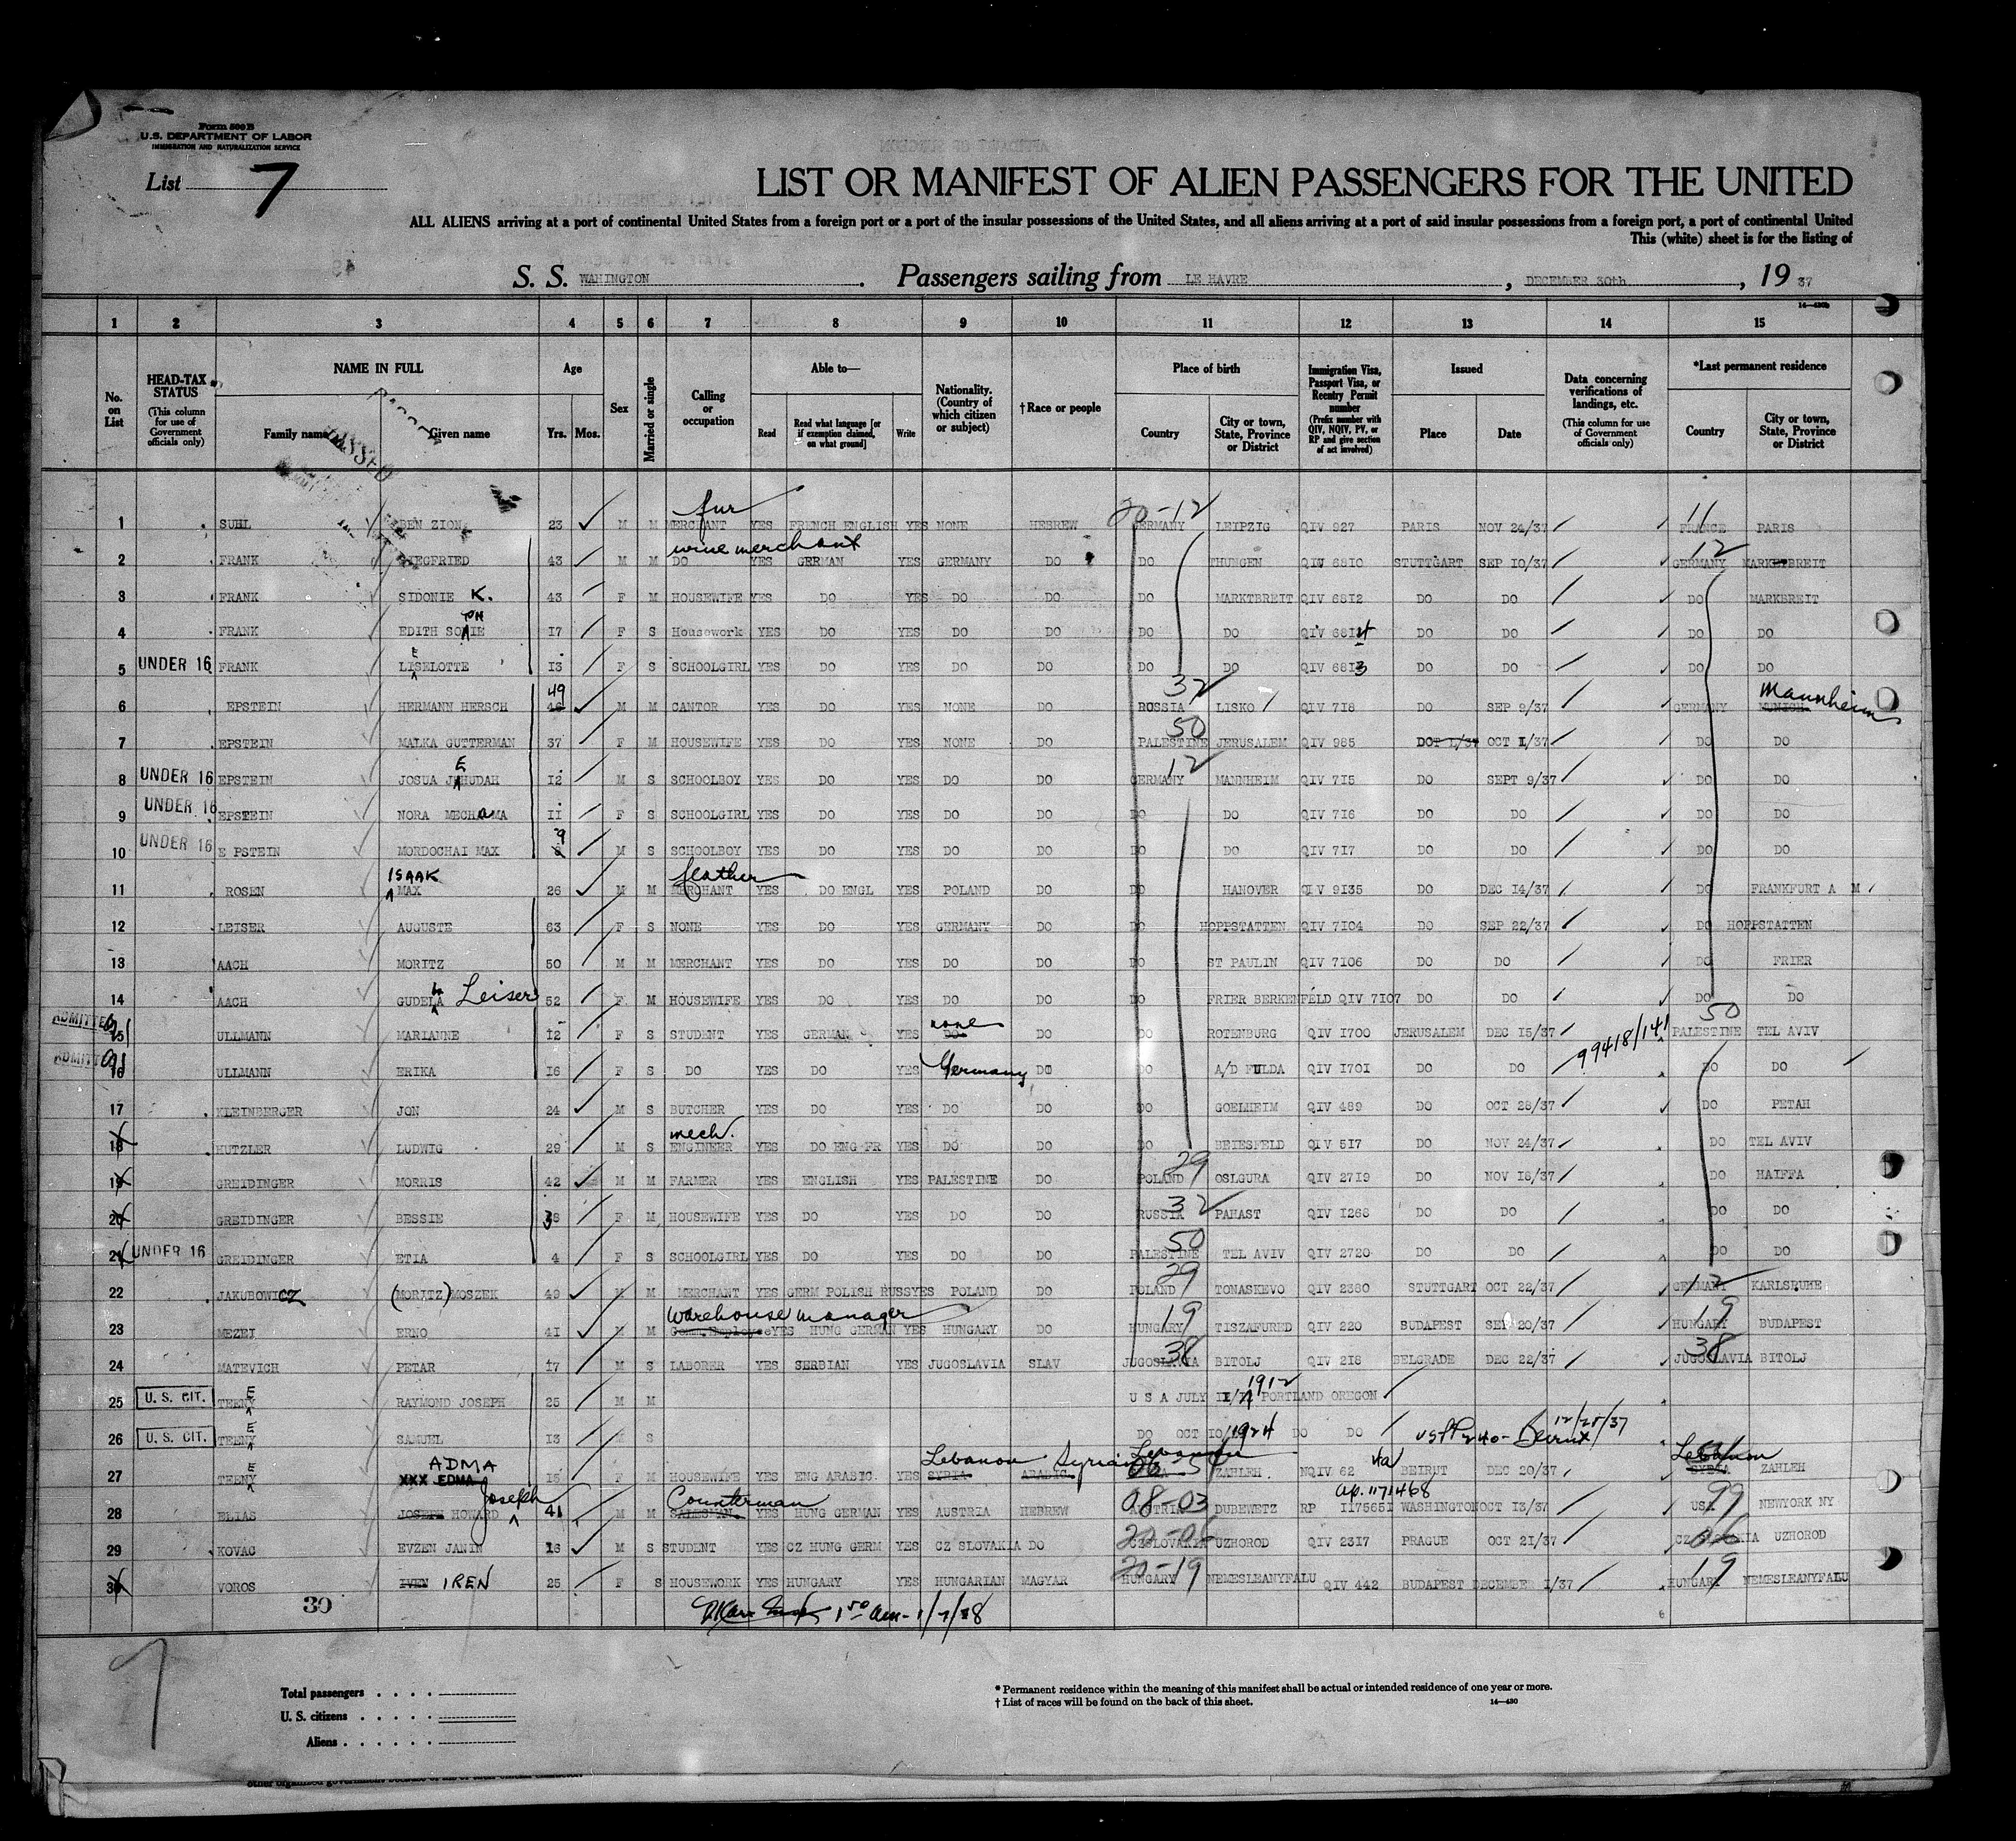 Form 500 B
U.S. DEPARTMENT OF LABOR
IMMIGRATION AND NATURALIZATION SERVICE
List 7
LIST OR MANIFEST OF ALIEN PASSENGERS FOR THE UNITED
ALL ALIENS arriving at a port of continental United States from a foreign port or a port of the insular possessions of the United States, and all aliens arriving at a port of said insular possessions from a foreign port, a port of continental United
This (white) sheet is for the listing of
S. S. WAHINGTON. Passengers sailing from LE HAVRE, DECEMBER 30th, 19 37
14—430b
1 2 3 4 5 6 7 8 9 10 11 12 13 14 15
No. on List
HEAD-TAX STATUS (This column for use of Government officials only)
NAME IN FULL
Family name Given name
Age
Yrs. Mos.
Sex
Married or single
Calling or occupation
Able to—
Read Read what language [or if exemption claimed, on what ground] Write
Nationality. (Country of which citizen or subject)
† Race or people
Place of birth
Country City or town, State, Province or District
Immigration Visa, Passport Visa, or Reentry Permit number (Prefix number with QIV, NQIV, PV, or RP and give section of act involved)
Issued
Place Date
Data concerning verifications of landings, etc. (This column for use of Government officials only)
*Last permanent residence
Country City or town, State, Province or District
fur 20-12 11
1 SUHL BEN ZION 23 M M MERCHANT YES FRENCH ENGLISH YES NONE HEBREW GERMANY LEIPZIG QIV 927 PARIS NOV 24/37 FRANCE PARIS
wine merchant 12
2 FRANK SIEGFRIED 43 M M DO YES GERMAN YES GERMANY DO DO THUNGEN QIV 6810 STUTTGART SEP 10/37 GERMANY MARKTBREIT
3 FRANK SIDONIE K. 43 F M HOUSEWIFE YES DO YES DO DO DO MARKTBREIT QIV 6812 DO DO DO MARKBREIT
4 FRANK EDITH SOPHIE 17 F S Housework YES DO YES DO DO DO DO QIV 6814 DO DO DO DO
5 UNDER 16 FRANK LIESELOTTE 13 F S SCHOOLGIRL YES DO YES DO DO DO DO QIV 6813 DO DO DO DO
49 32 Mannheim
6 EPSTEIN HERMANN HERSCH M M CANTOR YES DO YES NONE DO RUSSIA LISKO QIV 718 DO SEP 9/37 GERMANY MUNICH
50
7 EPSTEIN MALKA GUTTERMAN 37 F M HOUSEWIFE YES DO YES NONE DO PALESTINE JERUSALEM QIV 985 DO OCT 1/37 DO DO
12
8 UNDER 16 EPSTEIN JOSUA JEHUDAH 12 M S SCHOOLBOY YES DO YES DO DO GERMANY MANNHEIM QIV 715 DO SEPT 9/37 DO DO
9 UNDER 16 EPSTEIN NORA MECHAMA 11 F S SCHOOLGIRL YES DO YES DO DO DO DO QIV 716 DO DO DO DO
10 UNDER 16 E PSTEIN MORDOCHAI MAX 9 M S SCHOOLBOY YES DO YES DO DO DO DO QIV 717 DO DO DO DO
ISAAK
11 ROSEN MAX 26 M M MERCHANT YES DO ENGL YES POLAND DO DO HANOVER QIV 9135 DO DEC 14/37 DO FRANKFURT A M
12 LEISER AUGUSTE 63 F S NONE YES DO YES GERMANY DO DO HOPPSTATTEN QIV 7104 DO SEP 22/37 DO HOPPSTATTEN
13 AACH MORITZ 50 M M MERCHANT YES DO YES DO DO DO ST PAULIN QIV 7106 DO DO DO FRIER
14 AACH GUDELA Leiser 52 F M HOUSEWIFE YES DO YES DO DO DO FRIER BERKENFELD QIV 7107 DO DO DO DO
ADMITTED none 50
15 ULLMANN MARIANNE 12 F S STUDENT YES GERMAN YES DO DO DO ROTENBURG QIV 1700 JERUSALEM DEC 15/37 99418/141 PALESTINE TEL AVIV
ADMITTED
16 ULLMANN ERIKA 16 F S DO YES DO YES Germany DO DO A/D FULDA QIV 1701 DO DO DO DO
17 KLEINBERGER JON 24 M S BUTCHER YES DO YES DO DO DO GOELHEIM QIV 489 DO OCT 28/37 DO PETAH
mech.
18 HUTZLER LUDWIG 29 M S ENGINEER YES DO ENG FR YES DO DO DO BEIESFELD QIV 517 DO NOV 24/37 DO TEL AVIV
29
19 GREIDINGER MORRIS 42 M M FARMER YES ENGLISH YES PALESTINE DO POLAND OSLGURA QIV 2719 DO NOV 18/37 DO HAIFFA
32
20 GREIDINGER BESSIE 38 F M HOUSEWIFE YES DO YES DO DO RUSSIA PAHAST QIV 1268 DO DO DO DO
50
21 UNDER 16 GREIDINGER ETIA 4 F S SCHOOLGIRL YES DO YES DO DO PALESTINE TEL AVIV QIV 2720 DO DO DO DO
29 12
22 JAKUBOWICZ (MORITZ) MOSZEK 49 M M MERCHANT YES GERM POLISH RUSS YES POLAND DO POLAND TONASKEVO QIV 2380 STUTTGART OCT 22/37 GERMANY KARLSRUHE
Warehouse manager 19 19
23 MEZEI ERNO 41 M M YES HUNG GERMAN YES HUNGARY DO HUNGARY TISZAFURED QIV 220 BUDAPEST SEP 20/37 HUNGARY BUDAPEST
38 38
24 MATEVICH PETAR 17 M S LABORER YES SERBIAN YES JUGOSLAVIA SLAV JUGOSLAVIA BITOLJ QIV 218 BELGRADE DEC 22/37 JUGOSLAVIA BITOLJ
25 U. S. CIT. TEENY E RAYMOND JOSEPH 25 M M U S A JULY 1912 PORTLAND OREGON
26 U. S. CIT. TEENY E SAMUEL 13 M S DO OCT 10/1924 DO DO Beirut 12/20/37
ADMA Lebanon Syrian Lebanon Lebanon
27 TEENY E XXX EDMA 15 F M HOUSEWIFE YES ENG ARABIC. YES SYRIA ARABIC ZAHLEH NQIV 62 4a BEIRUT DEC 20/37 SYRIA ZAHLEH
Joseph Counterman 08-03 ap. 1171468 99
28 ELIAS JOSEPH HOWARD 41 M M SALESMAN YES HUNG GERMAN YES AUSTRIA HEBREW AUSTRIA DUBEWETZ RP 1175651 WASHINGTON OCT 13/37 USA NEWYORK NY
20-06 06
29 KOVAC EVZEN JANIN 16 M S STUDENT YES CZ HUNG GERM YES CZ SLOVAKIA DO CZSLOVAKIA UZHOROD QIV 2317 PRAGUE OCT 21/37 CZ SLOVAKIA UZHOROD
20-19 19
30 VOROS IVEN IREN 25 F S HOUSEWORK YES HUNGARY YES HUNGARIAN MAGYAR HUNGARY NEMESLEANYFALU QIV 442 BUDAPEST DECEMBER 1/37 HUNGARY NEMESLEANYFALU
30
1 50 am - 1/7/38
Total passengers . . . .
U. S. citizens . . . . .
Aliens . . . . . .
* Permanent residence within the meaning of this manifest shall be actual or intended residence of one year or more.
† List of races will be found on the back of this sheet.
14—430